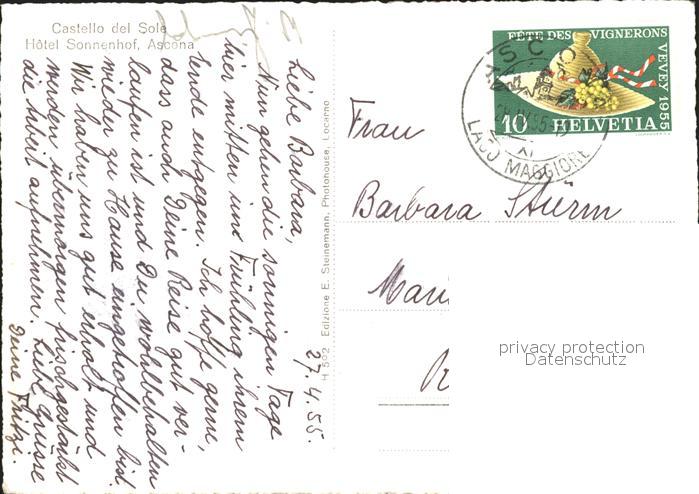 Castello del Sole
Hôtel Sonnenhof, Ascona
27.4.55.
Liebe Barbara,
Nun gehen die sonnigen Tage
hier mitten im Frühling ihrem
Ende entgegen. Ich hoffe gerne,
dass auch Deine Reise gut ver-
laufen ist und Du wohlbehalten
wieder zu Hause eingetroffen bist.
Wir haben uns gut erholt und
werden übermorgen frischgestärkt
die Arbeit aufnehmen. Liebe Grüsse
Deine Fritzi.
H 502 Edizione E. Steinemann, Photohouse, Locarno
FÊTE DES VIGNERONS
VEVEY 1955
10 HELVETIA
ASCONA
LAGO MAGGIORE
Frau
Barbara Stürm
privacy protection
Datenschutz